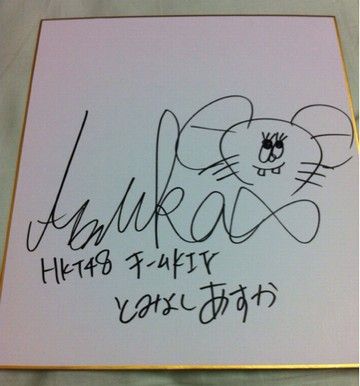 Asuka
HKT48 チームKIV
とみよし あすか